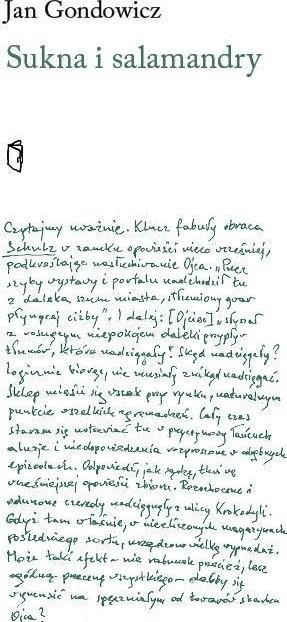 Jan Gondowicz
Sukna i salamandry
Czytajmy uważnie. Klucz fabuły obraca
Schulz w zamku opowieści nieco wcześniej,
podkreślając nasłuchiwanie Ojca. „Przez
szyby wystawy i portalu nadchodził tu
z daleka szum miasta, stłumiony gwar
płynącej ciżby". I dalej: [Ojciec] „słyszał
z rosnącym niepokojem daleki przypływ
tłumów, które nadciągały". Skąd nadciągały?
Logicznie biorąc, nie musiały znikąd nadciągać.
Sklep mieści się wszak przy rynku, naturalnym
punkcie wszelkich zgromadzeń. Cały czas
staram się ustawiać tu w przyczynowy łańcuch
aluzje i niedopowiedzenia rozproszone w odrębnych
epizodach. Odpowiedź, jak sądzę, tkwi we
wcześniejszej opowieści zbioru. Rozochocone i
odurzone czeredy nadciągnęły z ulicy Krokodyli.
Gdyż tam właśnie, w niezliczonych magazynach
pośledniego sortu, urządzono wielką wyprzedaż.
Może taki efekt – nie rabunek przecież, lecz
ogólną przecenę wszystkiego – dałoby się
wynosić na spęczniałym od towarów skarbcu
Ojca?